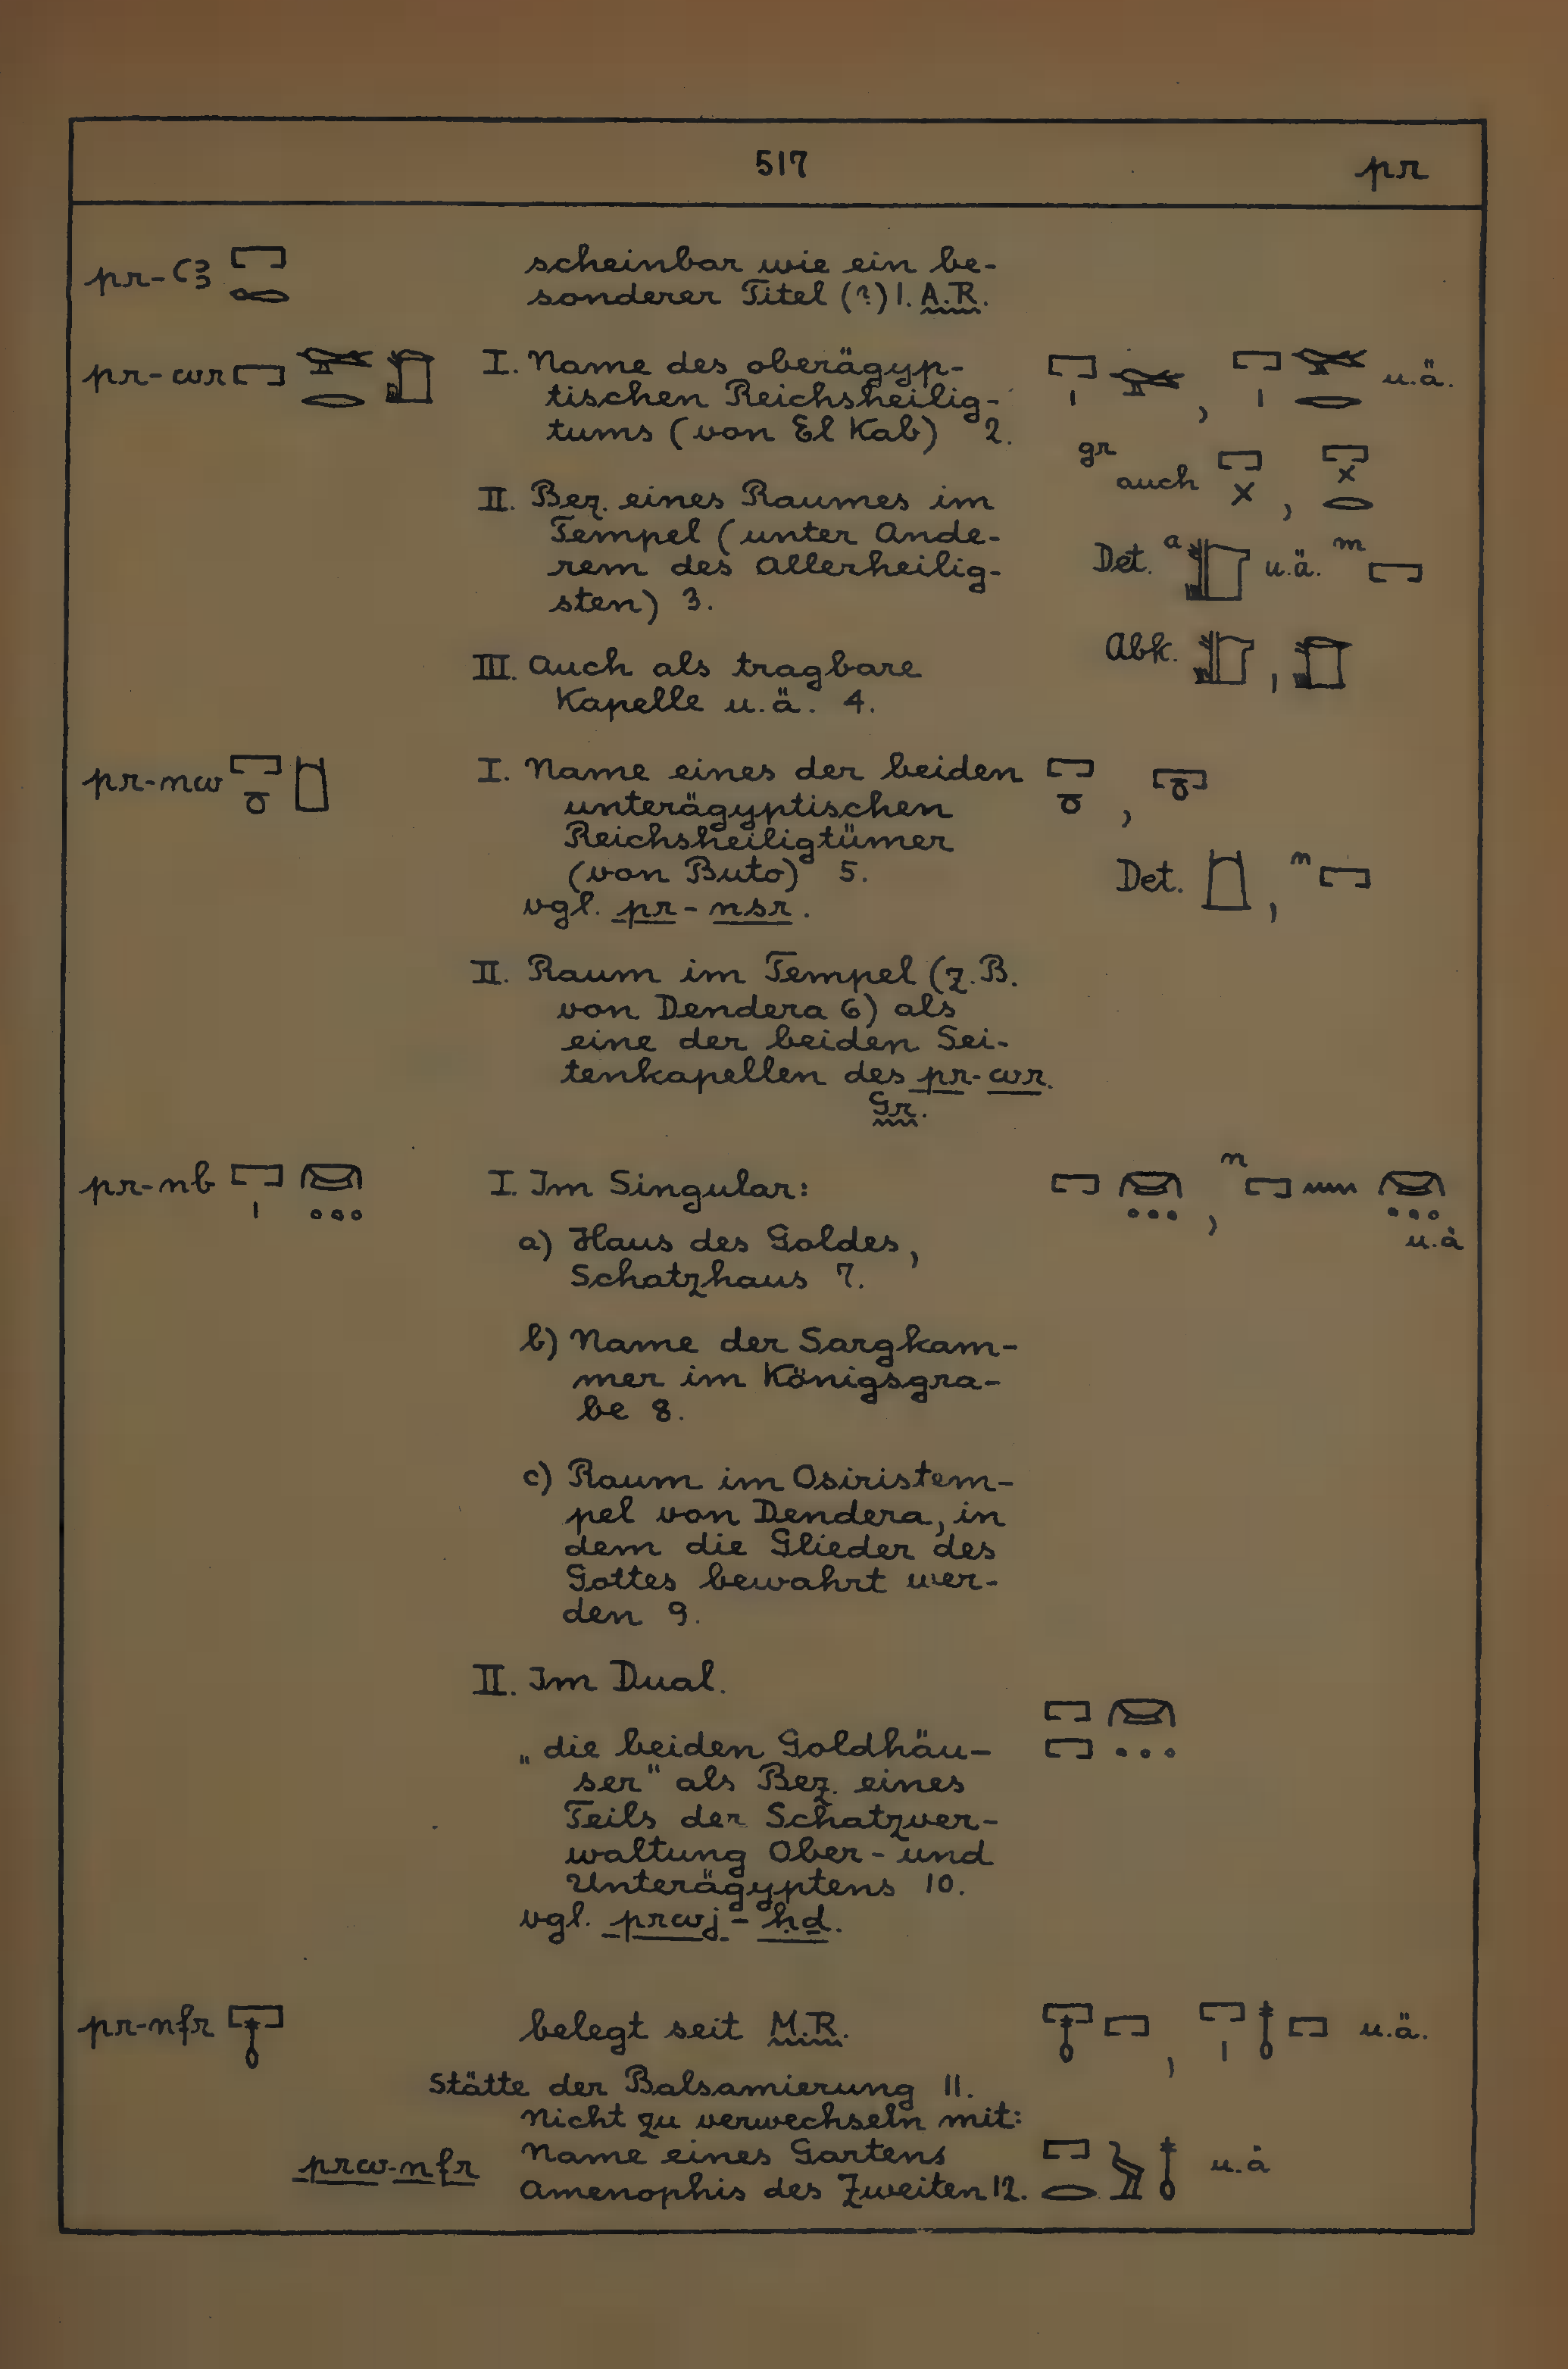 517 pr
pr-ꜥꜣ 𓉐𓉻 scheinbar wie ein be-
sonderer Titel (?) 1. A.R.
pr-wr I. Name des oberägyp- u.ä.
tischen Reichsheilig-
tums (von El Kab) 2.
gr auch
II. Bez. eines Raumes im
Tempel (unter Ande-
rem des Allerheilig-
sten) 3.
Det. a u.ä. m
III. Auch als tragbare
Kapelle u.ä. 4.
Abk.
pr-nw I. Name eines der beiden
unterägyptischen
Reichsheiligtümer
(von Buto) 5.
Det. , n
vgl. pr-nsr.
II. Raum im Tempel (z.B.
von Dendera 6) als
eine der beiden Sei-
tenkapellen des pr-wr.
Gr.
pr-nb I. Im Singular: n u.ä
a) Haus des Goldes,
Schatzhaus 7.
b) Name der Sargkam-
mer im Königsgra-
be 8.
c) Raum im Osiristem-
pel von Dendera, in
dem die Glieder des
Gottes bewahrt wer-
den 9.
II. Im Dual.
„die beiden Goldhäu-
ser" als Bez. eines
Teils der Schatzver-
waltung Ober- und
Unterägyptens 10.
vgl. prwj-ḥḏ.
pr-nfr belegt seit M.R. u.ä.
Stätte der Balsamierung 11.
Nicht zu verwechseln mit:
prw-nfr Name eines Gartens u.ä
Amenophis des Zweiten 12.